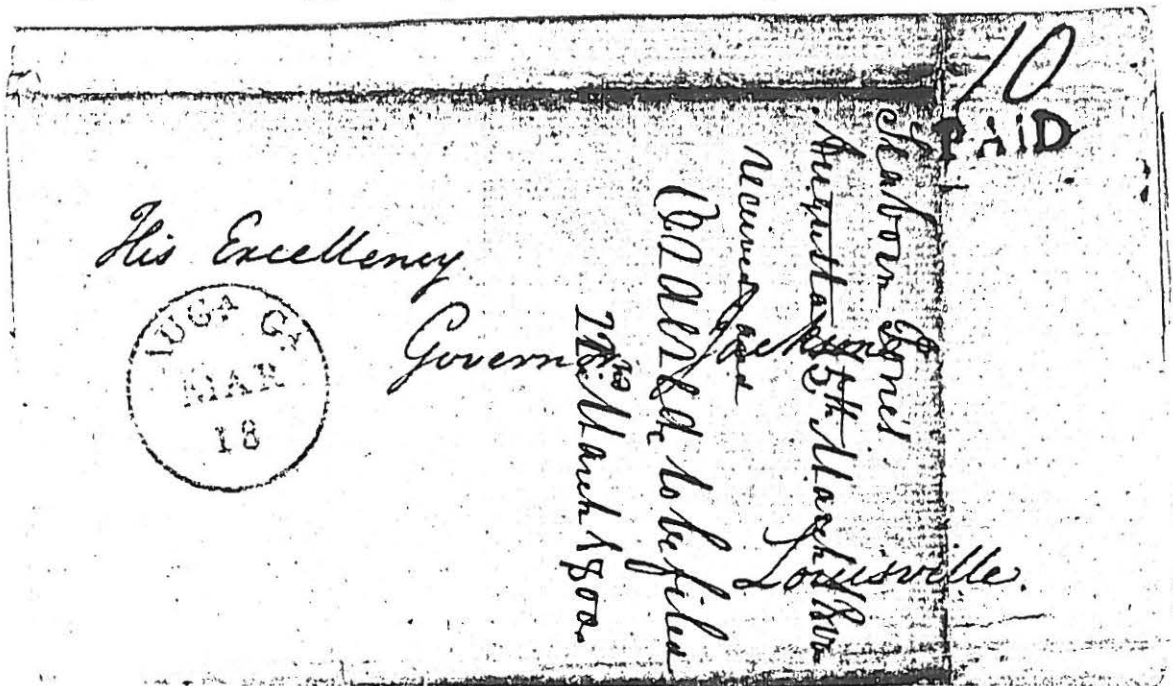 10
PAID
His Excellency
Governor Jackson
Louisville.
AUGA GA
MAR
18
Seaborn Jones
Augusta 15th March 1800
received and
Ordered to be filed
March 1800.